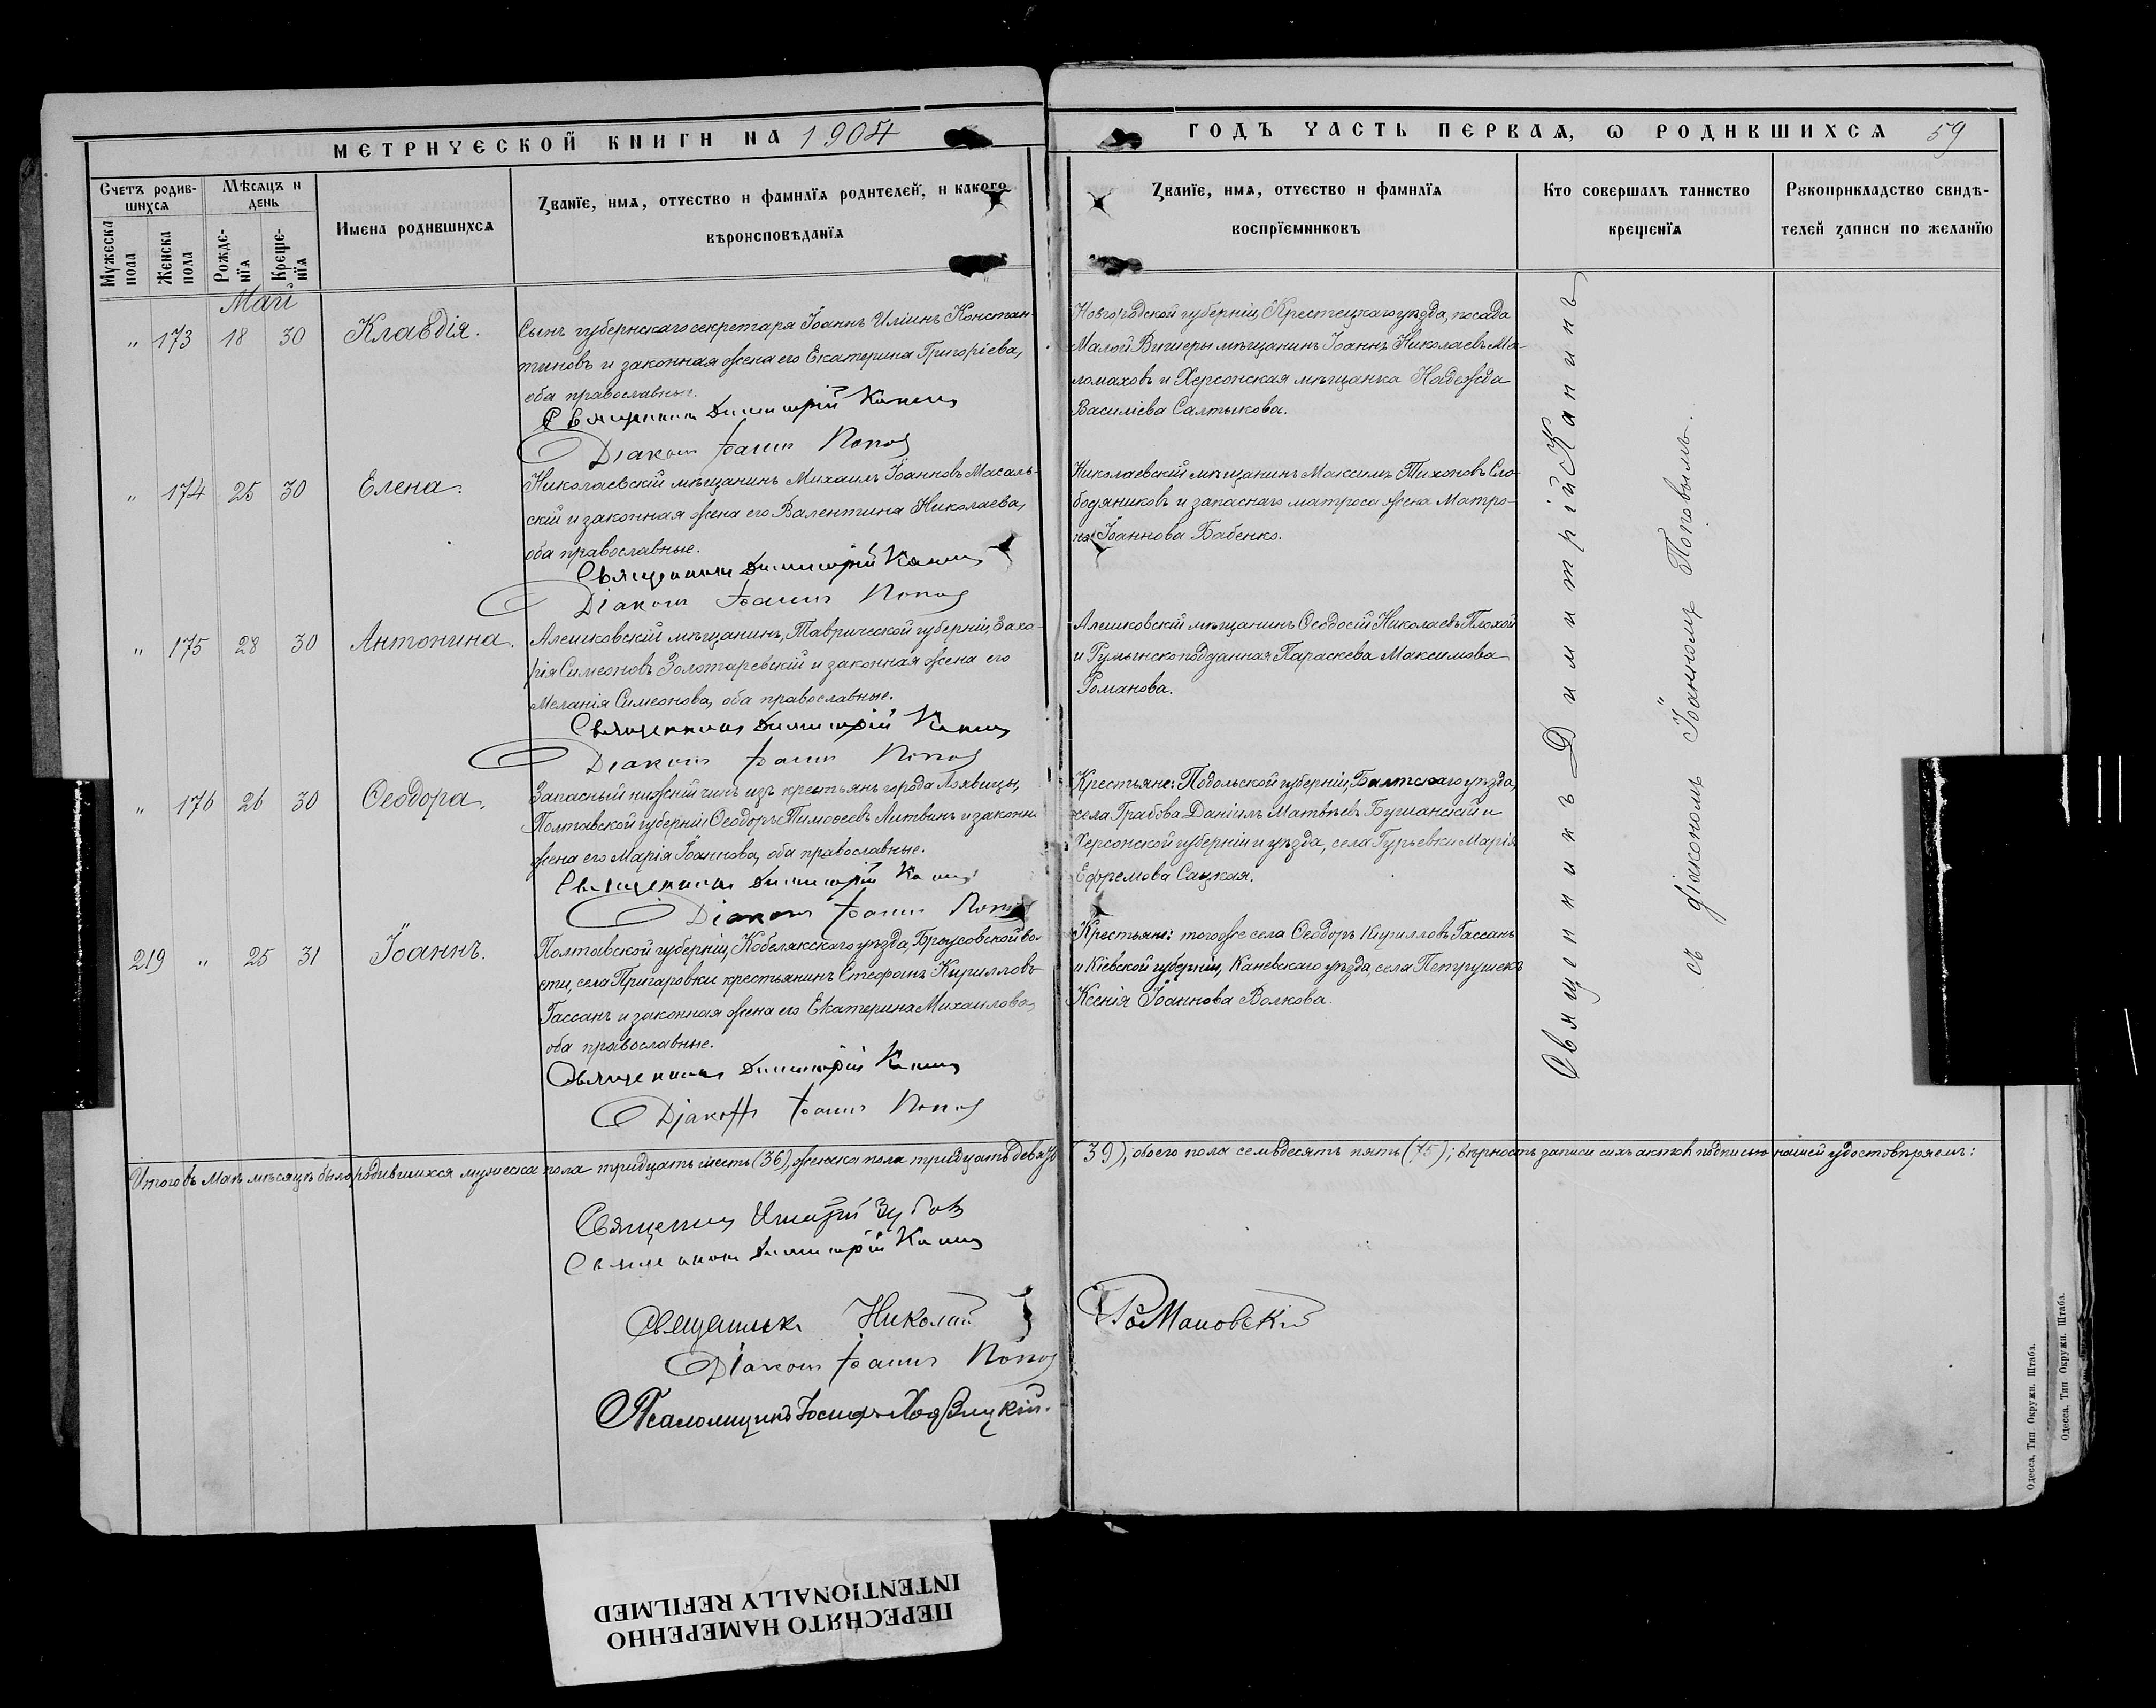 МЕТРИЧЕСКОЙ КНИГИ НА 1904
Счетъ родив-
шихся
Мѣсяцъ и
день
Мужеска
пола
Женска
пола
Рожде-
нїя
Креще-
нїя
Имена родившихся
Званїе, имя, отчество и фамилїя родителей, и какого
вѣроисповѣданїя
Май
„ 173 18 30 Клавдія.
Сынъ губернскаго секретаря Іоаннъ Иліинъ Констан-
тиновъ и законная жена его Екатерина Григоріева,
оба православные.
Священникъ Димитрій Капинъ
Діаконъ Іоаннъ Поповъ
„ 174 25 30 Елена.
Николаевскій мѣщанинъ Михаилъ Іоанновъ Масаль-
скій и законная жена его Валентина Николаева,
оба православные.
Священникъ Димитрій Капинъ
Діаконъ Іоаннъ Поповъ
„ 175 28 30 Антонина.
Алешковскій мѣщанинъ, Таврической губерніи, Заха-
рія Симеоновъ Золотаревскій и законная жена его
Меланія Симеонова, оба православные.
Священникъ Димитрій Капинъ
Діаконъ Іоаннъ Поповъ
„ 176 26 30 Ѳеодора.
Запасный нижній чинъ изъ крестьянъ города
Полтавской губерніи Ѳеодоръ Тимоѳеевъ Литвинъ и законн
жена его Марія Іоаннова, оба православные.
Священникъ Димитрій Капинъ
Діаконъ Іоаннъ Поповъ
219 „ 25 31 Іоаннъ.
Полтавской губерніи, Кобелякскаго уѣзда, Бреусовской во-
сти, села Пригаровки крестьянинъ Стефанъ Кирилловъ
Гассанъ и законная жена его Екатерина Михаилова,
оба православные.
Священникъ Димитрій Капинъ
Діаконъ Іоаннъ Поповъ
Итого въ Маѣ мѣсяцѣ было родившихся мужеска пола тридцать шесть (36), женска пола тридцать девять
Священникъ Зубовъ
Священникъ Димитрій Капинъ
Священникъ Николай
Діаконъ Іоаннъ Поповъ
Псаломщикъ Іосифъ
ГОДЪ ЧАСТЬ ПЕРВАЯ, Ѡ РОДИВШИХСЯ 59
Званїе, имя, отчество и фамилїя
воспрїемниковъ
Кто совершалъ таинство
крещенїя
Рукоприкладство свидѣ-
телей записи по желанїю
Новгородской губерніи, Крестецкаго уѣзда, посада
Малой Вишеры мѣщанинъ Іоаннъ Николаевъ Ма-
ломаховъ и Херсонская мѣщанка Надежда
Василіева Салтыкова.
Николаевскій мѣщанинъ Максимъ Тихоновъ Сло-
бодяниковъ и запаснаго матроса жена Матро-
на Іоаннова Бабенко.
Алешковскій мѣщанинъ Ѳеодосій Николаевъ Плохой
и Румынскоподданная Параскева Максимова
Романова.
Крестьяне: Подольской губерніи, Балтскаго уѣзда,
села Грабова Даніилъ Матвѣевъ Бушанскій и
Херсонской губерніи и уѣзда, села Гурьевки Марія
Ефремова Сацкая.
Крестьяне: тогоже села Ѳеодоръ Кирилловъ Гассанъ
и Кіевской губерніи, Каневскаго уѣзда, села Петрушекъ
Ксенія Іоаннова Волкова.
Священникъ Димитрій Капинъ
съ діакономъ Іоанномъ Поповымъ.
(39), обоего пола семьдесять пять (75); вѣрность записи сихъ актовъ подписью нашей удостовѣряемъ:
Романовскій
Одесса, Тип. Окружн. Штаба.
Одесса, Тип. Окружн. Штаба.
ПЕРЕСНЯТО НАМЕРЕННО
INTENTIONALLY REFILMED